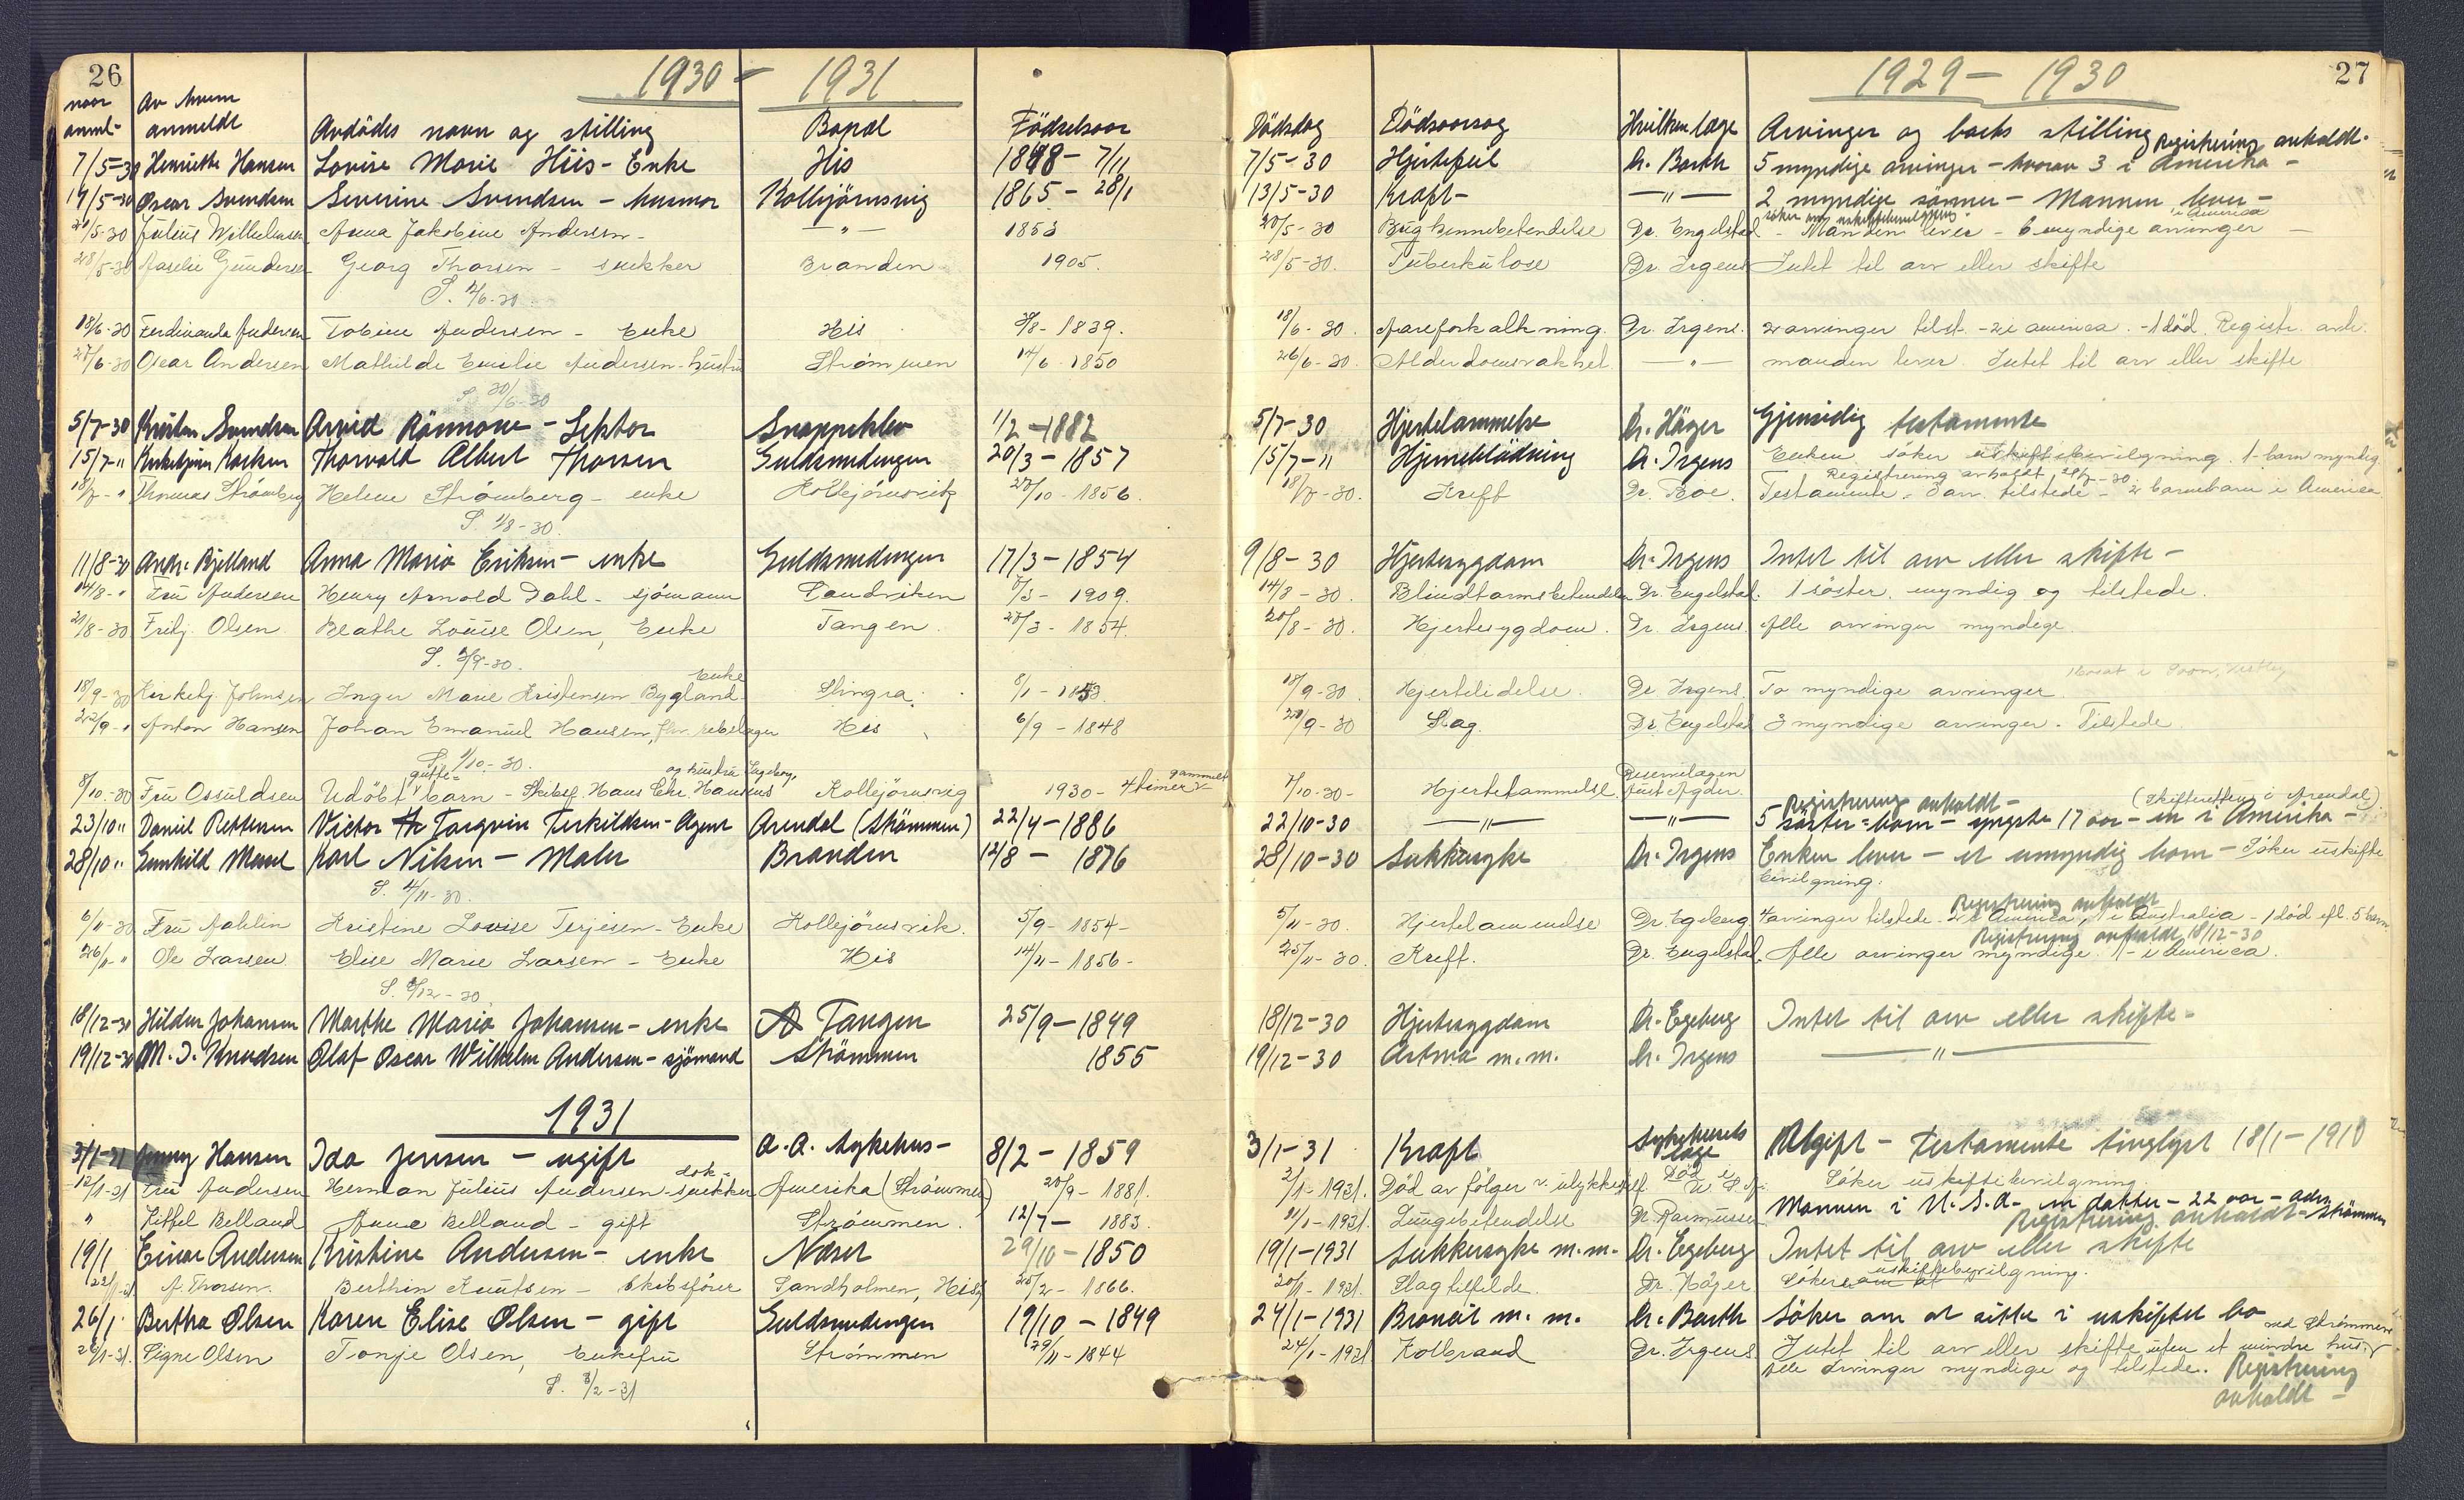 26
1930 - 1931
naar anmel-
Av hvem anmeldt
Avdödes navn og stilling
Bopæl
Födselsaar
7/5-30 Henriette Hansen Lovise Marie Hiis - Enke His 1848 - 7/11
19/5-30 Oscar Svendsen Severine Svendsen - husmor Kolbjörnsvig 1865 - 28/1
21/5-30 Julius Wilhelmsen Anna Jakobine Andersen - — " — 1853
28/5-30 Aaselie Gundersen Georg Thorsen - snekker Branden 1905.
S. 2/6-30
18/6-30 Ferdinanda Andersen Tobine Andersen - Enke His 3/8 - 1839.
27/6-30 Oscar Andersen Mathilde Emilie Andersen - hustru Strømmen 14/6 - 1850
S. 30/6-30
5/7-30 Kristen Svendsen Arvid Rönnow - Lektor Snappekilen 1/2 - 1882
15/7-" Kirketjener Karlsen Thorvald Albert Thorsen Guldsmedengen 20/3 - 1857
18/7-" Thomas Strømberg Helene Strømberg - enke Kolbjörnsvik 27/10 - 1856.
S. 1/8-30.
11/8-30 Andr. Bjelland Anna Maria Eriksen - enke Guldsmedengen 17/3 - 1854
14/8-" Fru Andersen Henry Arnold Dahl - sjömann Sandviken 7/3 - 1909.
21/8-30 Fritj. Olsen Beathe Louise Olsen, Enke Tangen 27/3 - 1854.
S. 2/9-30.
18/9-30 Kirketj. Johnsen Inger Marie Kristensen Bygland - Enke Stingra. 8/1 - 1853.
22/9-" Anton Hansen Johan Emanuel Hansen, rebslager His 6/9 - 1848
S. 1/10-30.
8/10-30 Fru Osuldsen Udöbt gutte= barn - Skibsf. Hans Chr. Hansens og hustru Ingeborg, Kolbjörnsvig 1930 - 4 timer gammelt
23/10 " Daniel Pettersen Victor Torqvin Terkildsen - Agent Arendal (Strömmen) 22/4 - 1886
28/10 " Gunhild Karl Nilsen - Maler Branden 12/8 - 1876
S. 4/11-30.
6/11-30 Fru Dahlin Kristine Lovise Terjesen - Enke Kolbjörnsvik. 5/9 - 1854 -
26/11-" Ole Larsen Elise Marie Larsen - Enke His 14/11 - 1856 -
S. 3/12-30.
18/12-30 Hildur Johansen Marthe Maria Johansen - enke Tangen 25/9 - 1849
19/12-30 M. J. Knudsen Olaf Oscar Wilhelm Andersen - sjömand Strömmen 1855
1931
3/1-31 Jenny Hansen Ida Jensen - ugift A. A. Sykehus - 8/2 - 1859
12/1-31 Fru Andersen Herman Julius Andersen - snekker Amerika (Strømmen) 20/9 - 1881.
" Kittel Belland Anne Belland - gift Strømmen. 12/7 - 1883.
19/1 Einar Andersen Kristine Andersen - enke Næset 29/10 - 1850
22/1-31 A. Thorsen. Berthin Knutsen - Skibsfører Sandholmen, Hisøy 25/2 - 1866.
26/1 Bertha Olsen Karen Elise Olsen - gift Guldsmedengen 19/10 - 1849
26/1-31. Signe Olsen Tonje Olsen, Enkefru Strømmen 29/11 - 1844
S. 3/2-31
27
1929 - 1930
Dödsdag Dödsaarsag Hvilken læge Arvinger og boets stilling
Registrering avholdt.
7/5-30 Hjertefeil Dr. Barth 5 myndige arvinger - hvorav 3 i Amerika -
13/5-30 Kræft - — " — 2 myndige sönner - Mannen lever -
søker om uskiftebevilgning.
20/5-30 Bughinnebetendelse Dr. Engelstad - Manden lever - 6 myndige arvinger i America
28/5-30. Tuberkulose Dr. Irgens Intet til arv eller skifte
18/6-30. Aareforkalkning. Dr. Irgens. 2 arvinger tilst. - 2 i america. - 1 død. Registr. avh.
26/6-30. Alderdomsvakhet — " — manden lever. Intet til arv eller skifte
5/7-30 Hjertelammelse Dr. Häger Gjensidig testamente
15/7-" Hjerneblödning Dr. Irgens Enken söker uskiftebevilgning. 1 barn myndig
Registrering avholdt 28/7-30
18/7-30. Kreft Dr. Boe. Testamente. arv. tilstede - 2 barnebarn i America
9/8-30 Hjertesygdom Dr. Irgens Intet til arv eller skifte -
14/8-30. Blindtarmsbetendelse Dr. Engelstad. 1 söster. myndig og tilstede.
20/8-30. Hjertesygdom. Dr. Irgens Alle arvinger myndige.
18/9-30. Hjertelidelse. Dr Irgens To myndige arvinger.
20/9-30 Slag. Dr. Engelstad 3 myndige arvinger. Tilstede.
7/10-30 - Hjertelammelse. Reservelægen Aust Agder.
Registrering avholdt - (Skifteretten i Arendal)
22/10-30 — " — — " — 5 söster=barn - yngste 17 aar - en i Amerika -
28/10-30 Sukkersyke Dr. Irgens Enken lever - et umyndig barn - Söker uskifte
bevilgning.
Registrering avholdt
5/11-30. Hjertelammelse Dr. Egeberg 4 arvinger tilstede. 2 i America, 1 i Australia - 1 død eft. 5 barn
Registrering avholdt 18/12-30
25/11-30. Kreft. Dr. Engelstad. Alle arvinger myndige. 1 - i America.
18/12-30 Hjertesygdom Dr. Egeberg Intet til arv eller skifte -
19/12-30 Astma m.m. Dr. Irgens — " —
3/1-31 Kræft Sykehusets læge Utgift - Testamente tinglyst 18/1 - 1910
2/1-1931. Död av følger v. ulykkestilf. Död i U.S.A. Söker uskiftebevilgning.
Mannen i U.S.A. - en datter - 22 aar - adr. Strömmen
11/1-1931. Lungebetendelse Dr Rasmussen Registrering avholdt -
19/1-1931 Sukkersyke m.m. Dr. Egeberg Intet til arv eller skifte
20/1-1931. Slagtilfelde. Dr. Höjer. Söker uskiftebevilgning.
24/1-1931 Broncit m. m. Dr. Barth Söker om at sitte i uskiftet bo
24/1-1931 Kolbrand Dr. Irgens Intet til arv eller skifte uten et mindre hus ved Strømmen
Alle arvinger myndige og tilstede. Registrering
avholdt -